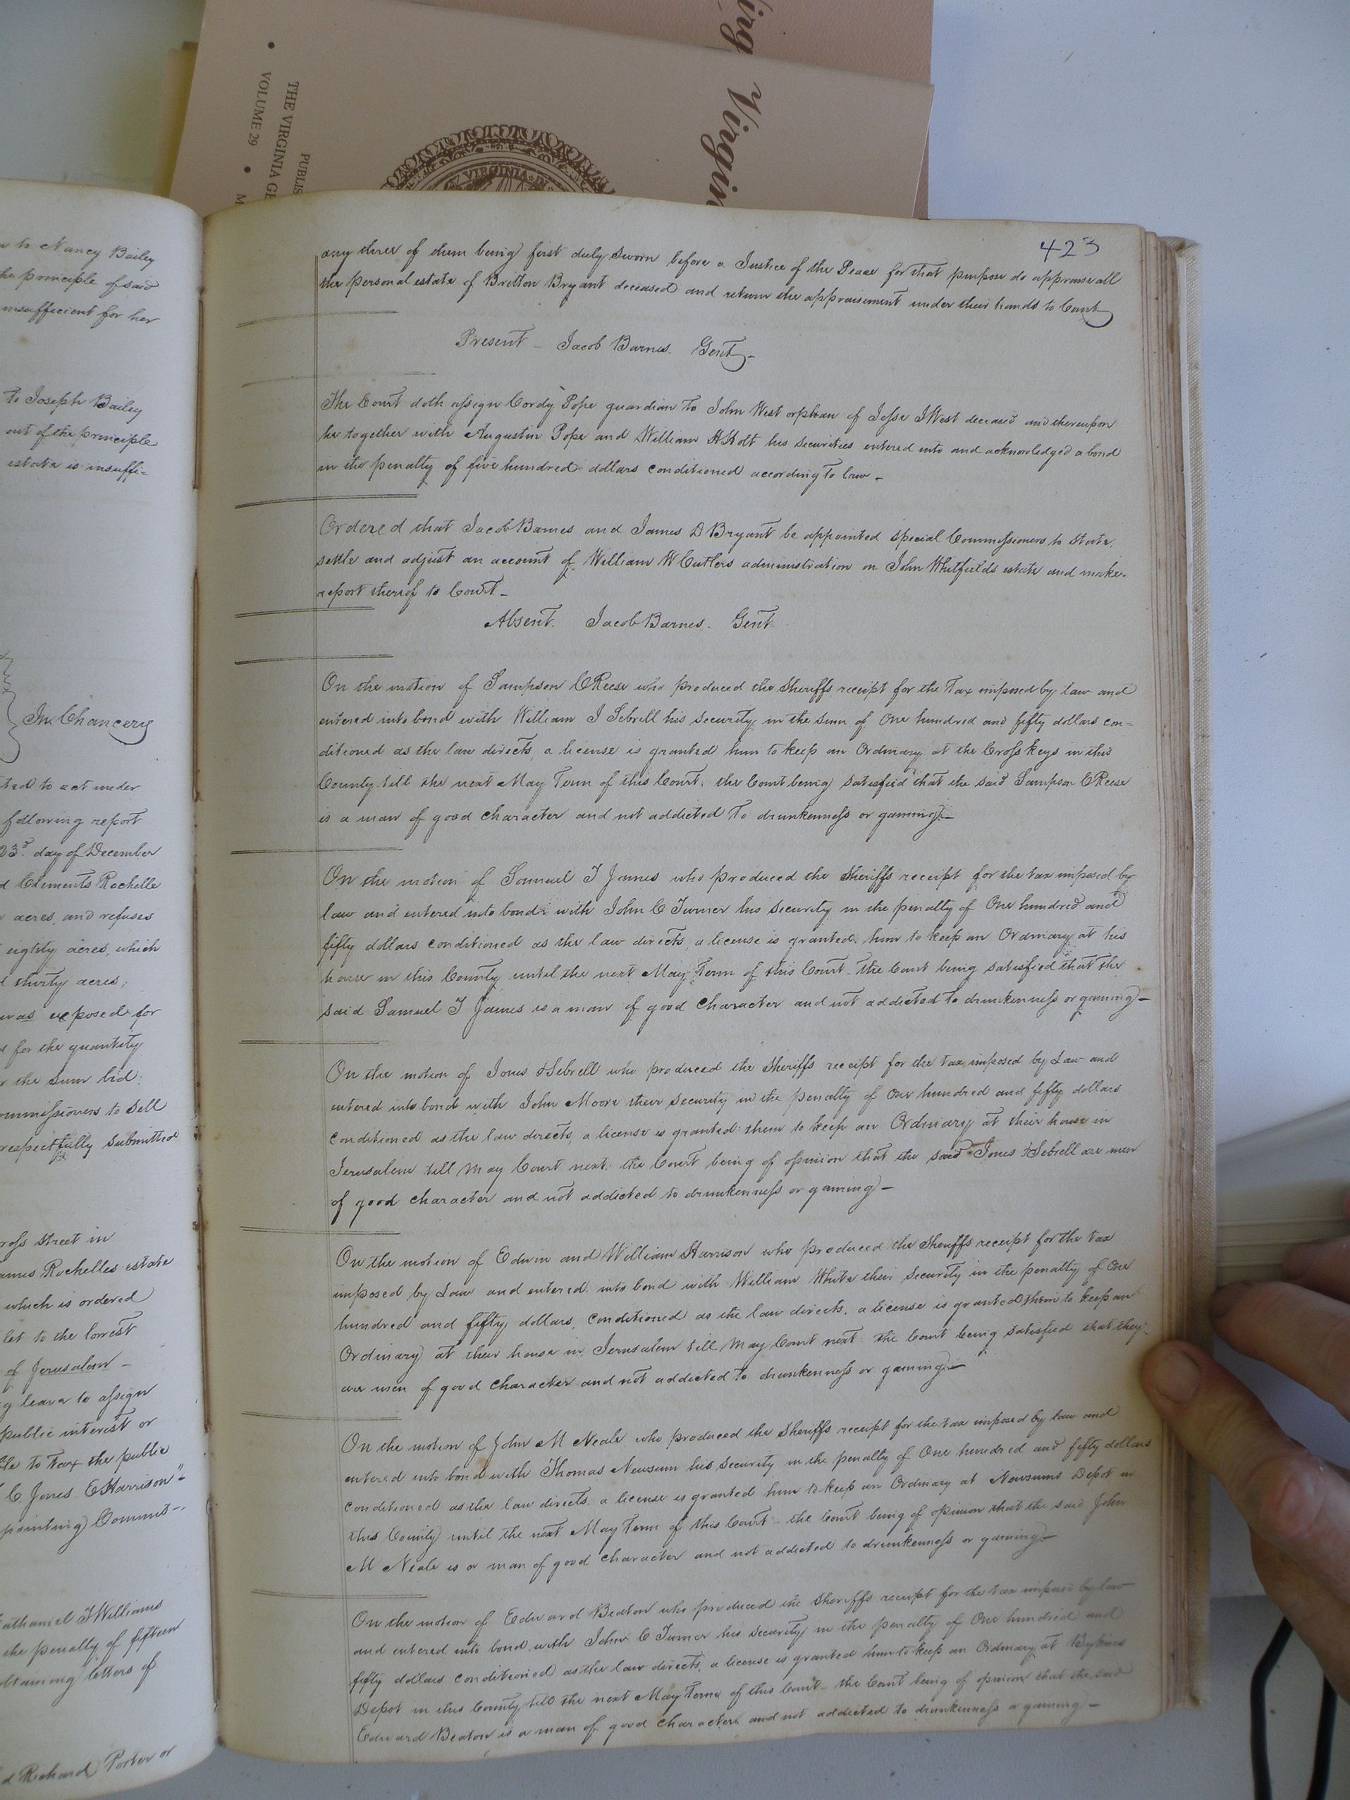 ing Virgin
PUBLIS
THE VIRGINIA GE
VOLUME 29
M
VIRGINIA
to Nancy Bailey
the principle of said
insufficient for her
To Joseph Bailey
out of the principle
estate is insuffi-
In Chancery
to act under
following report
23d day of December
Clements Rochelle
acres, and refuses
eighty acres, which
thirty acres;
was exposed for
for the quantity
the sum bid.
ommissioners to sell
respectfully submitted
ross street in
ames Rochelles estate
which is ordered
let to the lowest
of Jerusalem -
g leave to assign
public interest or
to tax the public
C Jones C Harrison
pointing) Commis-
athaniel T Williams
the penalty of fifteen
obtaining letters of
d Richard Porter or
423
any three of them being first duly sworn before a Justice of the Peace for that purpose do appraise all
the personal estate of Britton Bryant deceased and return the appraisement under their hands to Court
Present - Jacob Barnes. Gent -
The Court doth assign Cordy Pope guardian to John West orphan of Jesse J West deceased and thereupon
he together with Augustin Pope and William H Holt his securities entered into and acknowledged a bond
in the penalty of five hundred dollars conditioned according to law -
Ordered that Jacob Barnes and James D Bryant be appointed special Commissioners to state,
settle and adjust an account of William W Cutlers administration on John Whitfields estate and make
report thereof to Court -
Absent. Jacob Barnes. Gent
On the motion of Sampson C Reese who produced the Sheriffs receipt for the tax imposed by law and
entered into bond with William J Sebrell his security in the sum of One hundred and fifty dollars con-
ditioned as the law directs, a license is granted him to keep an Ordinary at the Cross keys in this
County till the next May Term of this Court, the Court being satisfied that the said Sampson C Reese
is a man of good character and not addicted to drunkenness or gaming -
On the motion of Samuel T James who produced the Sheriffs receipt for the tax imposed by
law and entered into bond with John C Turner his security in the penalty of One hundred and
fifty dollars conditioned as the law directs, a license is granted him to keep an Ordinary at his
house in this County until the next May Term of this Court - the Court being satisfied that the
said Samuel T James is a man of good character and not addicted to drunkenness or gaming -
On the motion of Jones & Sebrell who produced the Sheriffs receipt for the tax imposed by Law and
entered into bond with John Moore their security in the penalty of One hundred and fifty dollars
conditioned as the law directs, a license is granted them to keep an Ordinary at their house in
Jerusalem till May Court next - the Court being of opinion that the said Jones & Sebrell are men
of good character and not addicted to drunkenness or gaming -
On the motion of Edwin and William Harrison who produced the Sheriffs receipt for the tax
imposed by Law and entered into bond with William White their security in the penalty of One
hundred and fifty dollars, conditioned as the law directs, a license is granted them to keep an
Ordinary at their house in Jerusalem till May Court next - the Court being satisfied that they
are men of good character and not addicted to drunkenness or gaming -
On the motion of John M Neale who produced the Sheriffs receipt for the tax imposed by law and
entered into bond with Thomas Newsum his security in the penalty of One hundred and fifty dollars
conditioned as the law directs a license is granted him to keep an Ordinary at Newsums Depot in
this County until the next May Term of this Court - the Court being of opinion that the said John
M Neale is a man of good character and not addicted to drunkenness or gaming -
On the motion of Edward Beaton who produced the Sheriffs receipt for the tax imposed by law
and entered into bond with John C Turner his security in the penalty of One hundred and
fifty dollars conditioned as the law directs, a license is granted him to keep an Ordinary at Boykins
Depot in this County till the next May Term of this Court - the Court being of opinion that the said
Edward Beaton is a man of good character and not addicted to drunkenness or gaming -